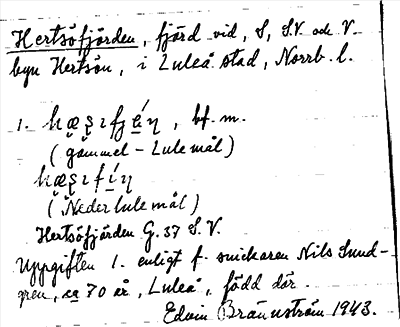 Hertsöfjärden, fjärd vid, S, S.V. och V.
byn Hertsön, i Luleå stad, Norrb. l.
1. , bf. m.
(gammel-Lulemål)
(Nederlulemål)
Hertsöfjärden G. 37 S.V.
Uppgiften 1. enligt f. snickaren Nils Sund-
gren, ca 70 år, Luleå, född där.
Edvin Brännström 1943.